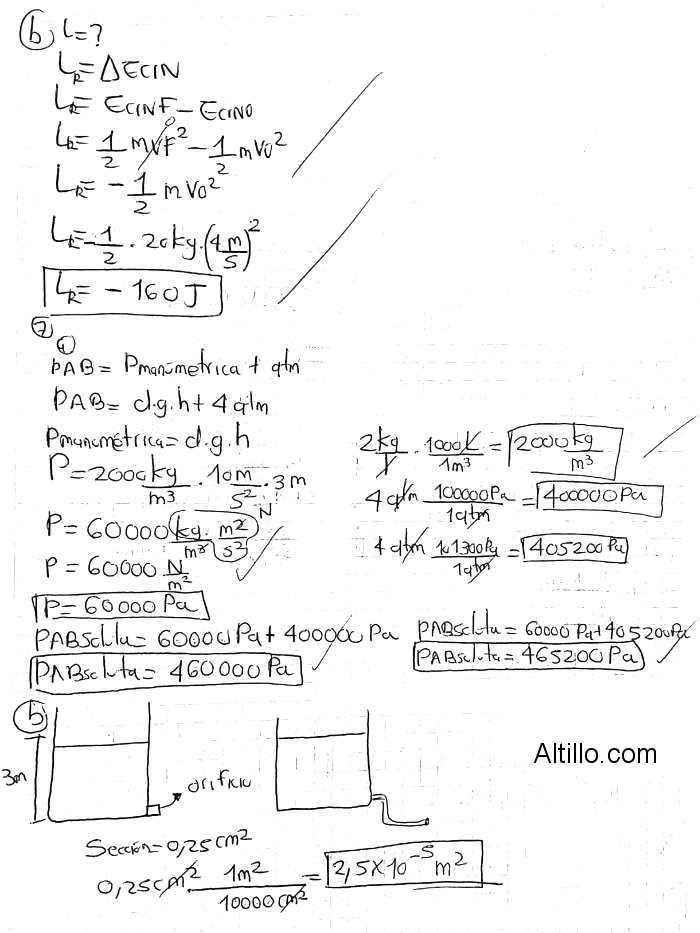 b) L=?
LR= ΔECIN
LR= ECINF - ECINO
LR= 1/2 mVF² - 1/2 mVo²
0
LR= - 1/2 mVo²
LR= - 1/2 . 20kg . (4 m/s)²
LR= - 160J
7
a)
PAB= Pmanométrica + atm
PAB= d.g.h + 4 atm
Pmanométrica= d.g.h
P= 2000 kg/m³ . 10 m/s² . 3m
P= 60000 kg/m³ . m²/s² N
P= 60000 N/m²
P= 60000 Pa
PABsoluta= 60000 Pa + 400000 Pa
PABsoluta= 460000 Pa
2kg/l . 1000 l/1m³ = 2000 kg/m³
4 atm 100000 Pa/1 atm = 400000 Pa
4 atm 101300 Pa/1 atm = 405200 Pa
PABsoluta= 60000 Pa + 405200 Pa
PABsoluta= 465200 Pa
b)
3m
orificio
Altillo.com
Sección= 0,25 cm²
0,25 cm² 1m²/10000 cm² = 2,5x10⁻⁵ m²